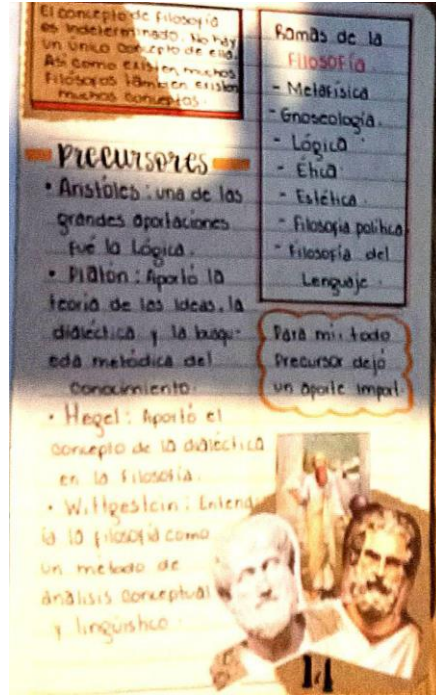 El concepto de Filosofía
es indeterminado. No hay
un único concepto de ella.
Así como existen muchos
Filósofos también existen
muchos conceptos.
Ramas de la
FILOSOFÍA
- Metafísica
- Gnoseología.
- Lógica
- Ética
- Estética.
- Filosofía política
- Filosofía del
Lenguaje.
PRECURSORES
• Aristóles: una de las
grandes aportaciones
fué la Lógica.
• Platón: Aportó la
teoría de las ideas, la
dialéctica y la búsqu-
eda metódica del
conocimiento.
• Hegel: Aportó el
concepto de la dialéctica
en la filosofía.
• Wittgestein: Entend
ía la filosofía como
un método de
análisis conceptual
y lingüístico.
Para mi, todo
Precursor dejó
un aporte import.
14